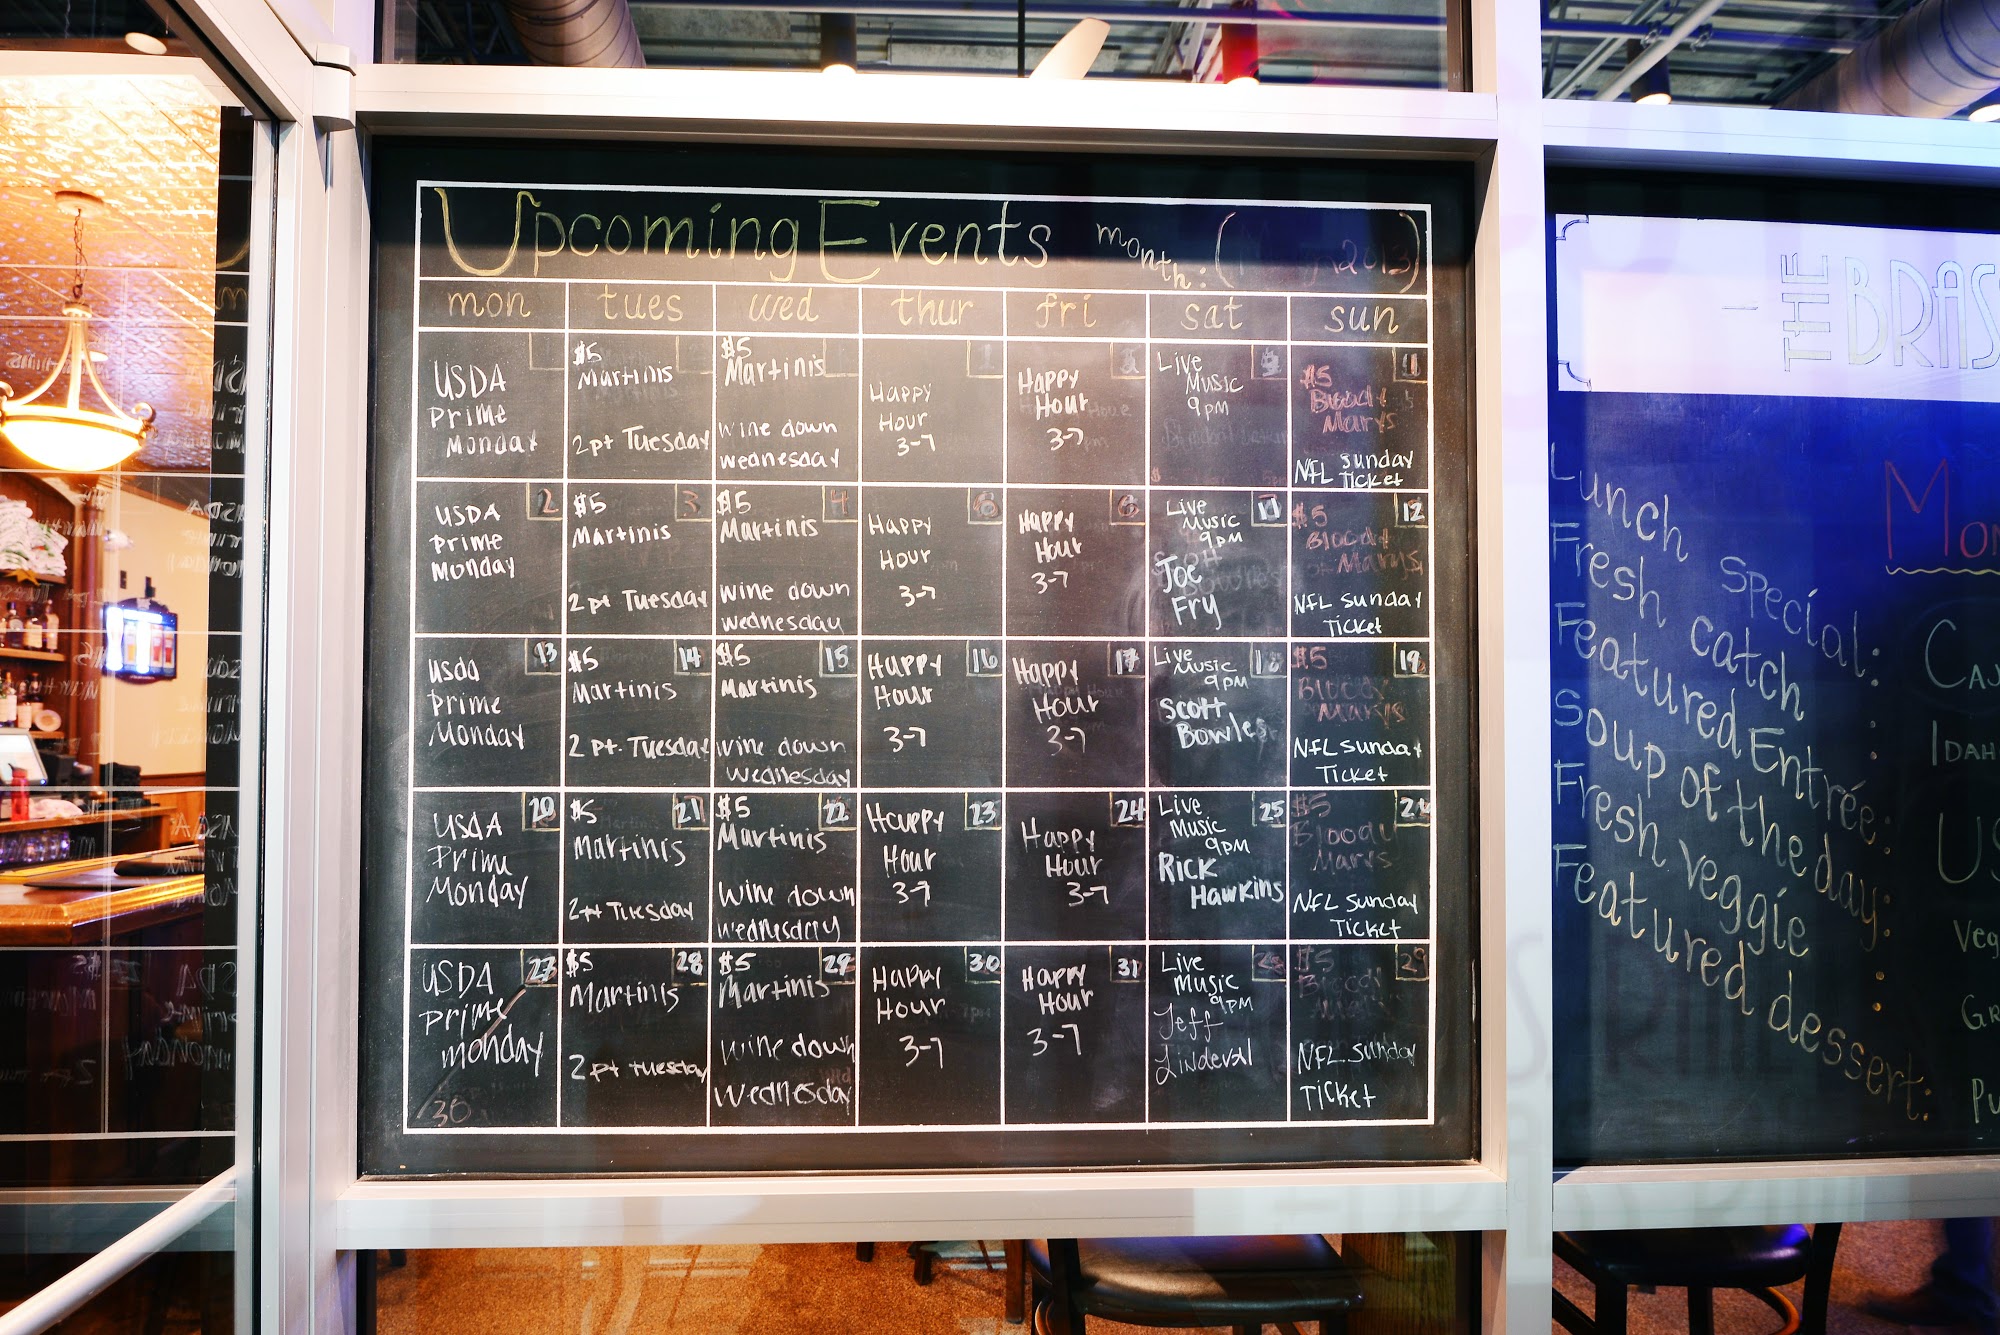 Upcoming Events month:
mon tues wed thur fri sat sun
USDA
Prime
Monday
$5
Martinis
2pt Tuesday
$5
Martinis
Wine down
Wednesday
Happy
Hour
3-7
Happy
Hour
3-7
Live
Music
9pm
$5
Bloody
Marys
NFL Sunday
Ticket
2
USDA
Prime
Monday
3
$5
Martinis
2pt Tuesday
4
$5
Martinis
Wine down
Wednesday
Happy
Hour
3-7
Happy
Hour
3-7
11
Live
Music
9pm
Joe
Fry
12
$5
Bloody
Marys
NFL Sunday
Ticket
13
USDA
Prime
Monday
14
$5
Martinis
2 pt. Tuesday
15
$5
Martinis
Wine down
Wednesday
16
Happy
Hour
3-7
17
Happy
Hour
3-7
Live
Music
9pm
Scott
Bowles
19
$5
Bloody
Marys
NFL Sunday
Ticket
20
USDA
Prime
Monday
21
$5
Martinis
2pt Tuesday
22
$5
Martinis
Wine down
Wednesday
23
Happy
Hour
3-7
24
Happy
Hour
3-7
25
Live
Music
9pm
Rick
Hawkins
26
$5
Bloody
Marys
NFL Sunday
Ticket
27
USDA
Prime
Monday
30
28
$5
Martinis
2pt Tuesday
29
$5
Martinis
Wine down
Wednesday
30
Happy
Hour
3-7
31
Happy
Hour
3-7
Live
Music
9pm
Jeff
Linderal
$5
Bloody
Marys
NFL Sunday
Ticket
THE BRAS
Lunch Special:
Fresh catch
Featured Entrée:
Soup of the day:
Fresh veggie
Featured dessert:
Mon
Caj
Idah
US
Veg
Gr
Pu